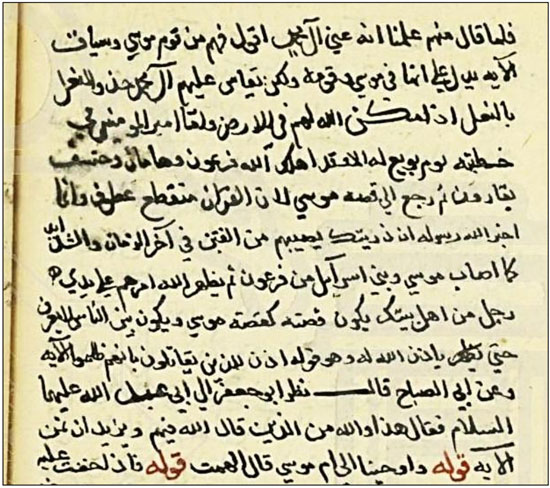 فلما قال منهم علمنا انه عني آل محمد اقول فهم من قوم موسي وسياق
الآيه يدل علي انها في موسي وقومه ولكن يقاس عليهم آل محمد حذو النعل
بالنعل اذ لم يمكن الله لهم في الارض ولقد امير المومنين في
خطبته يوم بويع له الا وقد اهلك الله فرعون وهامان وخسف
بقارون ثم رجع الي قصه موسي لان القران منقطع معطوف وانما
اخبر الله رسوله ان ذريتك يصيبهم من الفتن في آخر الزمان والشدايد
كما اصاب موسي وبني اسرآئيل من فرعون ثم يظهر الله امرهم علي يدي
رجل من اهل بيتك يكون قصته كقصته موسي ويكون بين الناس لا يعرف
حتي يظهر ياذن الله له وهو قوله اذن للذين يقاتلون بانهم ظلموا الآيه
وعن ابي الصباح قال نظر ابو جعفر الي ابي عبد الله عليهما
السلام فقال هذا والله من الذين قال الله فيهم ونريد ان نمن
الآيه قوله واوحينا الي ام موسي قال الهمت قوله فاذا خفت عليه